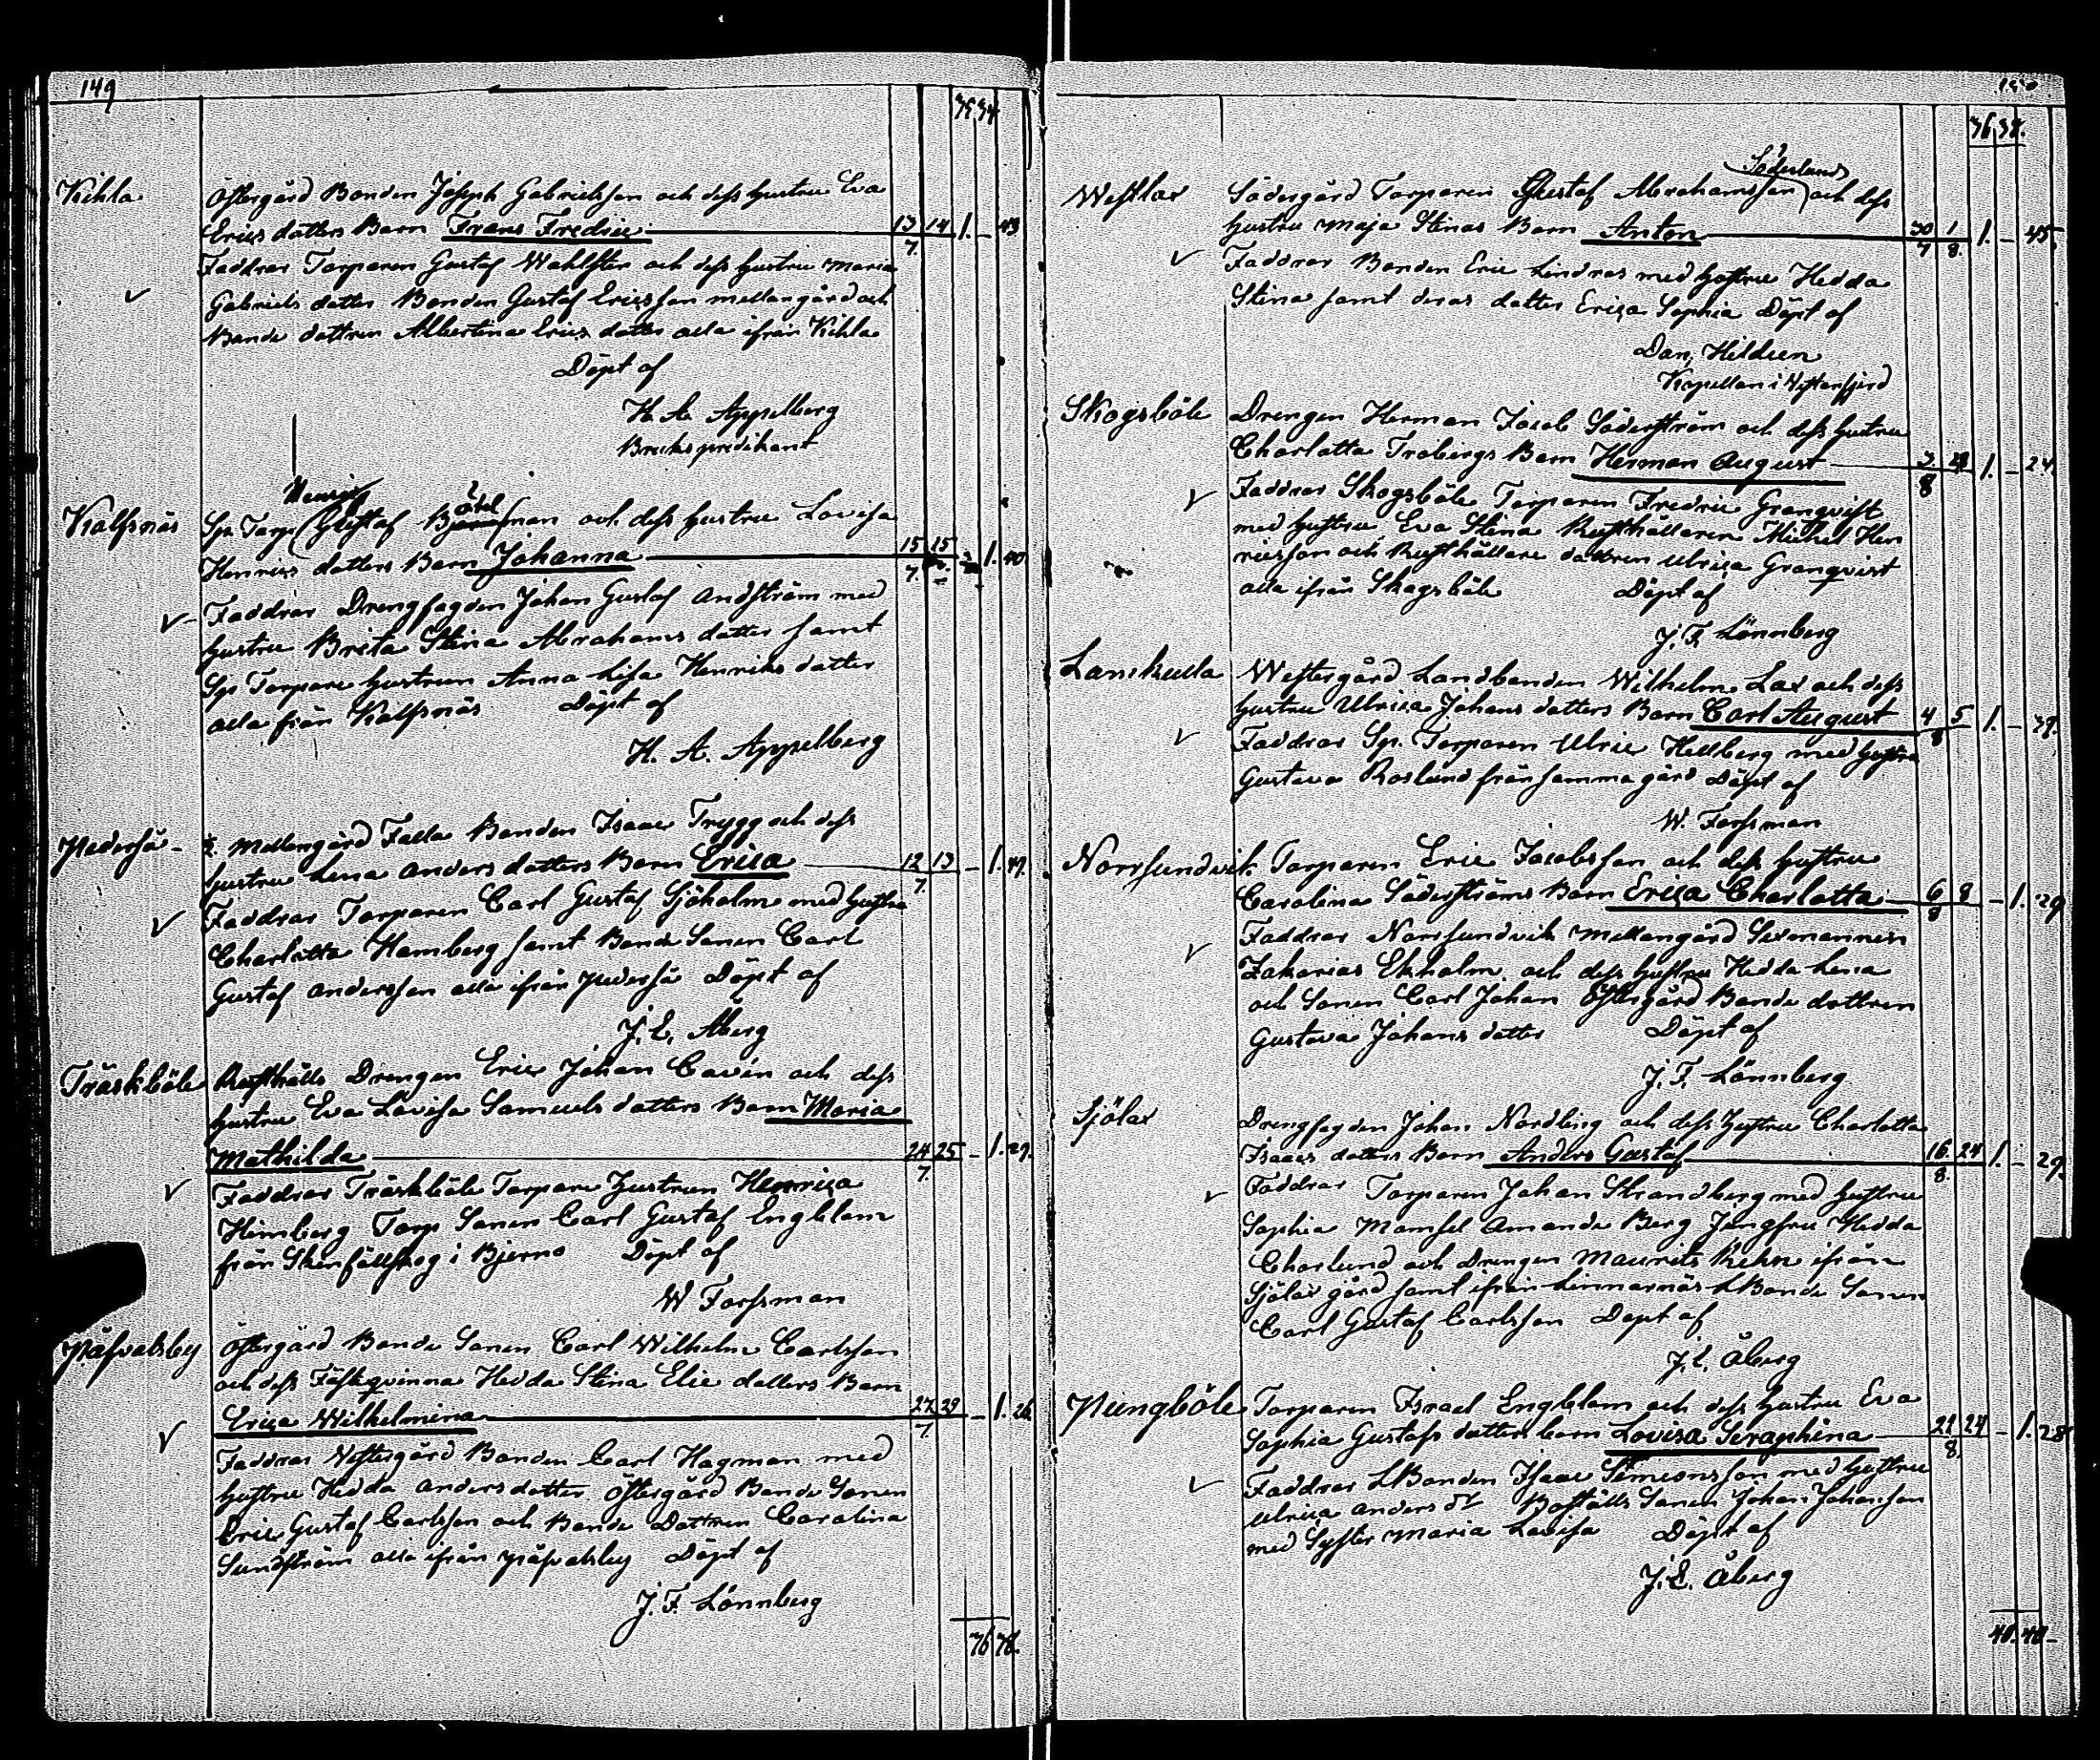 149
35 34
Kihla Östergård Bonden Joseph Gabrielsson och dess hustru Eva
Erics dotters Barn Frans Fredric 13/7 14 1. – 43
Faddrar Torparen Gustaf Wahlsten och dess hustru Maria
Gabriels dotter Bonden Gustaf Ericsson mellangård och
Bonde dottren Albertina Erics dotter alla ifrån Kihla
Döpt af
H. A. Appelberg
Brukspredikant
Henric
Kalfsnäs Sp. Torp. Gustaf man och dess hustru Lovisa
Henrics dotters Barn Johanna 15/7 15 – 1. 40
Faddrar Drengfogden Johan Gustaf Andström med
hustru Brita Stina Abrahams dotter samt
Sp. Torpare hustrun Anna Lisa Henriks dotter
alla från Kalfsnäs Döpt af
H. A. Appelberg
Pederså ½ Mellangård Falla Bonden Isaac Trygg och dess
hustru Lena Anders dotters Barn Erica 12/7 13 – 1. 49.
Faddrar Torparen Carl Gustaf Sjöholm med hustru
Charlotta Hamberg samt Bonde Sonen Carl
Gustaf Andersson alla ifrån Pederså Döpt af
J. E. Åberg
Träskböle Rusthålls Drengen Eric Johan Cavén och dess
hustru Eva Lovisa Samuels dotters Barn Maria
Mathilda 24/7 25 – 1. 29.
Faddrar Träskböle Torpare hustrun Henrica
Heimberg Torp Sonen Carl Gustaf Engblom
från Skinfällskog i Bjerno Döpt af
W Forssman
Påfvalsby Östergård Bonde Sonen Carl Wilhelm Carlsson
och dess Fästqvinna Hedda Stina Elie dotters Barn
Erica Wilhelmina 27/7 29 – 1. 26
Faddrar Westergård Bonden Carl Hagman med
hustru Hedda Anders dotter Östergård Bonde Sonen
Eric Gustaf Carlsson och Bonde Dottren Carolina
Sundström alla ifrån Påfvalsby Döpt af
J. F. Lönnberg
36 38.
150
36 38.
Söderlund
Westlax Södergård Torparen Gustaf Abrahamsson och dess
hustru Maja Stinas Barn Anton 30/7 1/8. 1. – 45.
Faddrar Bonden Eric Lindros med hustru Hedda
Stina samt deras dotter Erica Sophia Döpt af
Dan. Hildeen
Kapellan i Westanfjerd
Skogsböle Drengen Herman Jacob Söderström och dess hustru
Charlotta Trobergs Barn Herman August 3/8 4 1. – 24.
Faddrar Skogsböle Torparen Fredric Granqvist
med hustru Eva Stina Rusthållaren Michel Hen
ricsson och Rusthållare dottren Ulrica Granqvist
alla ifrån Skogsböle Döpt af
J. F. Lönnberg
Lamkulla Westergård Landbonden Wilhelm Lax och dess
hustru Ulrica Johans dotters Barn Carl August 4/8 5 1. – 39.
Faddrar Sp. Torparen Ulric Hellberg med hustru
Gustava Roslund från samma gård Döpt af
W. Forssman
Norrsundvik Torparen Eric Jacobsson och dess hustru
Carolina Söderströms Barn Erica Charlotta 6/8 8 – 1. 29
Faddrar Norrsundvik Mellangård Sexmannen
Zakarias Ekholm och dess hustru Hedda Lena
och Sonen Carl Johan Östergård Bonde dottren
Gustava Johans dotter Döpt af
J. F. Lönnberg
Sjölax Drengfogden Johan Nordling och dess hustru Charlotta
Isaacs dotters Barn Anders Gustaf 16/8. 24 1. – 29.
Faddrar Torparen Johan Strandberg med hustru
Sophia Mamsel Amanda Berg Jungfru Hedda
Charlund och Drengen Maurits Rehn ifrån
Sjölax gård samt ifrån Linnarnäs LBonde Sonen
Carl Gustaf Carlsson Döpt af
J. E. Åberg
Pungböle Torparen Israel Engblom och dess hustru Eva
Sophia Gustafs dotters barn Lovisa Seraphina 22/8. 24 – 1. 28
Faddrar LBonden Isaac Simeonsson med hustru
Ulrica Anders dr Boställs Sonen Johan Johansson
med Syster Maria Lovisa Döpt af
J. E. Åberg
40. 40